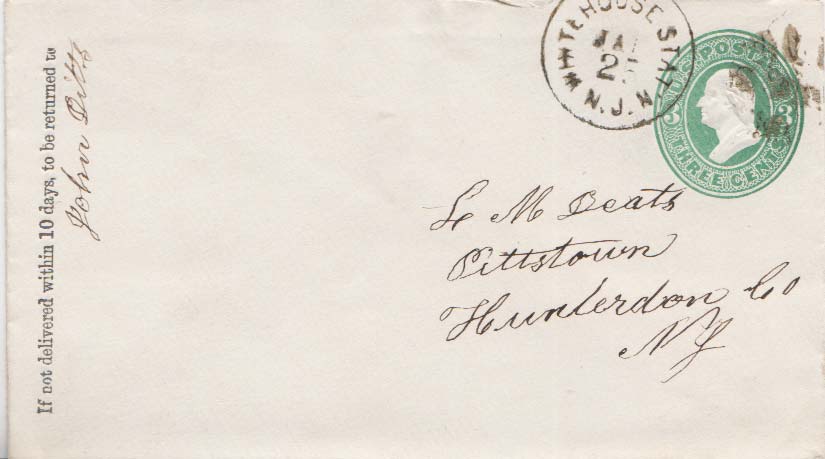 If not delivered within 10 days, to be returned to
John Ditts
WHITEHOUSE STAT.
N.J.
JA
2
U.S. POSTAGE
3 3
THREE CENTS
L M Deats
Pittstown
Hunterdon Co
NJ